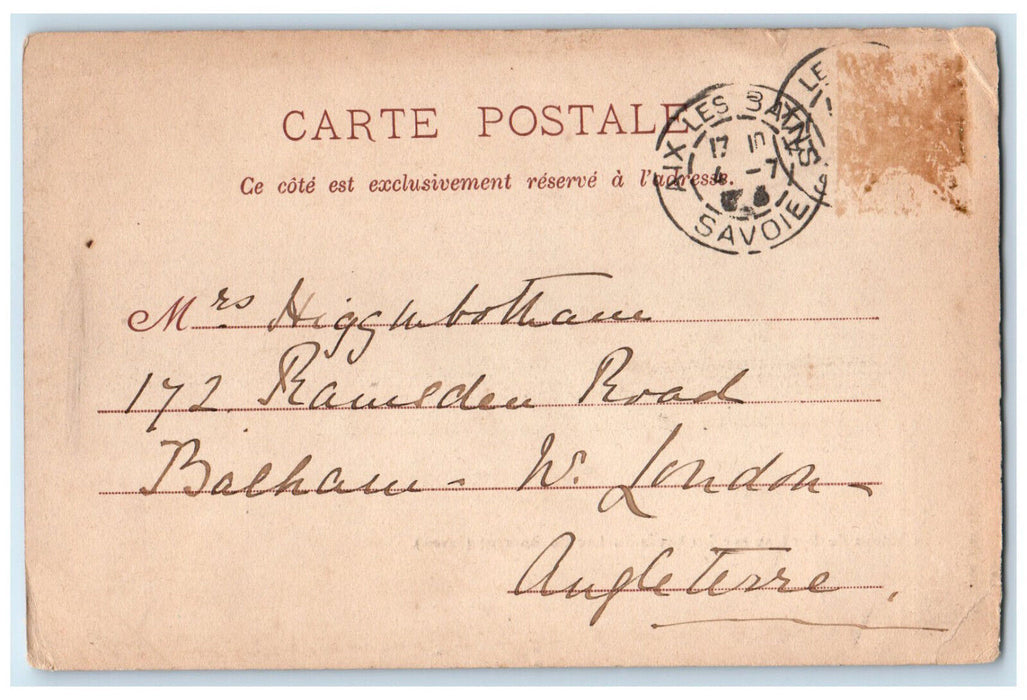 CARTE POSTALE
Ce côté est exclusivement réservé à l'adresse.
AIX-LES-BAINS
17
-7
SAVOIE
LE
Mrs Higginbotham
172. Ramsden Road
Balham - W. London -
Angleterre,